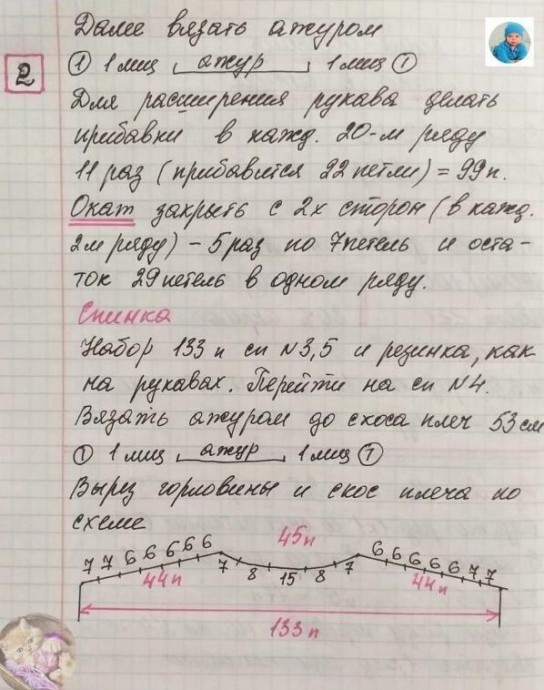 Далее вязать ажуром
2
① 1 лиц ажур 1 лиц ①
Для расширения рукава делать
прибавки в кажд. 20-м ряду
11 раз (прибавится 22 петли) = 99 п.
Окат закрыть с 2х сторон (в кажд.
2м ряду) – 5 раз по 7 петель и оста-
ток 29 петель в одном ряду.
Спинка
Набор 133 п сп N3,5 и резинка, как
на рукавах. Перейти на сп N4.
Вязать ажуром до скоса плеч 53 см
① 1 лиц ажур 1 лиц ①
Вырез горловины и скос плеча по
схеме
45п
7 7 6 6 6 6 6 7 8 15 8 7 6 6 6 6 6 7 7
44п 44п
133 п